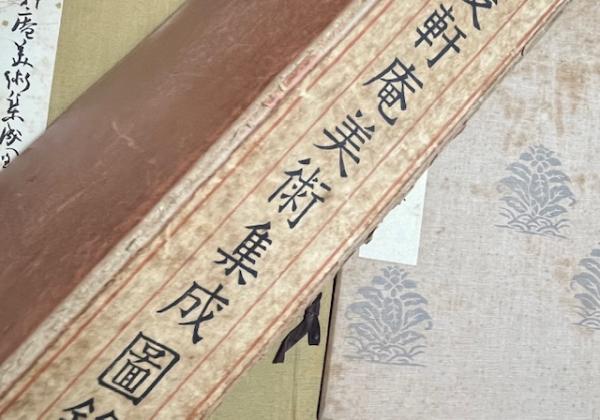 軒庵美術集成圖錄
庵美術集成圖